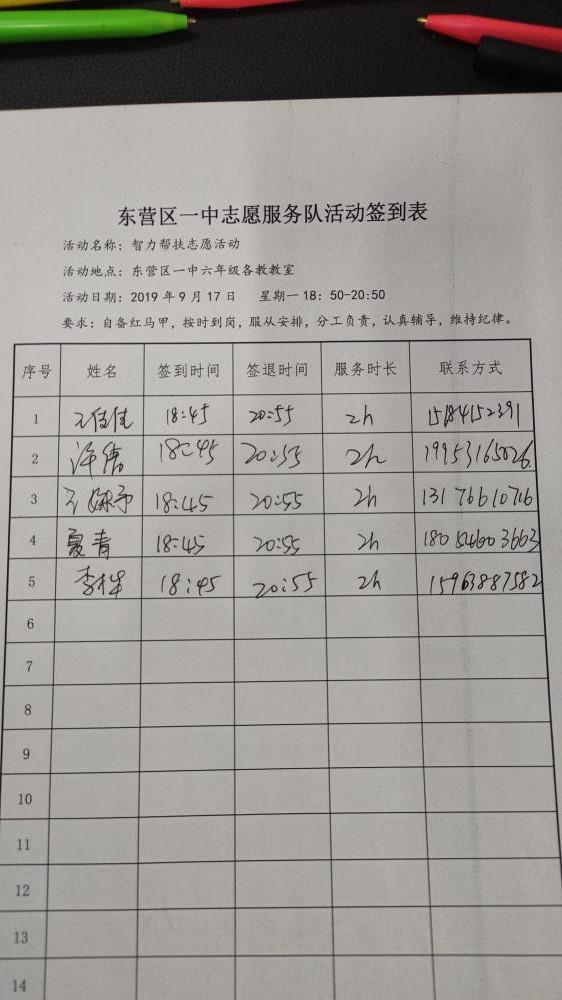 东营区一中志愿服务队活动签到表
活动名称：智力帮扶志愿活动
活动地点：东营区一中六年级各教教室
活动日期：2019年9月17日 星期一18：50-20:50
要求：自备红马甲，按时到岗，服从安排，分工负责，认真辅导，维持纪律。
序号 姓名 签到时间 签退时间 服务时长 联系方式
1 王佳佳 18:45 20:55 2h
2 18:45 20:55 2h 19953165026
3 18:45 20:55 2h 13176610716
4 夏青 18:45 20:55 2h
5 18:45 20:55 2h 15963887582
6
7
8
9
10
11
12
13
14